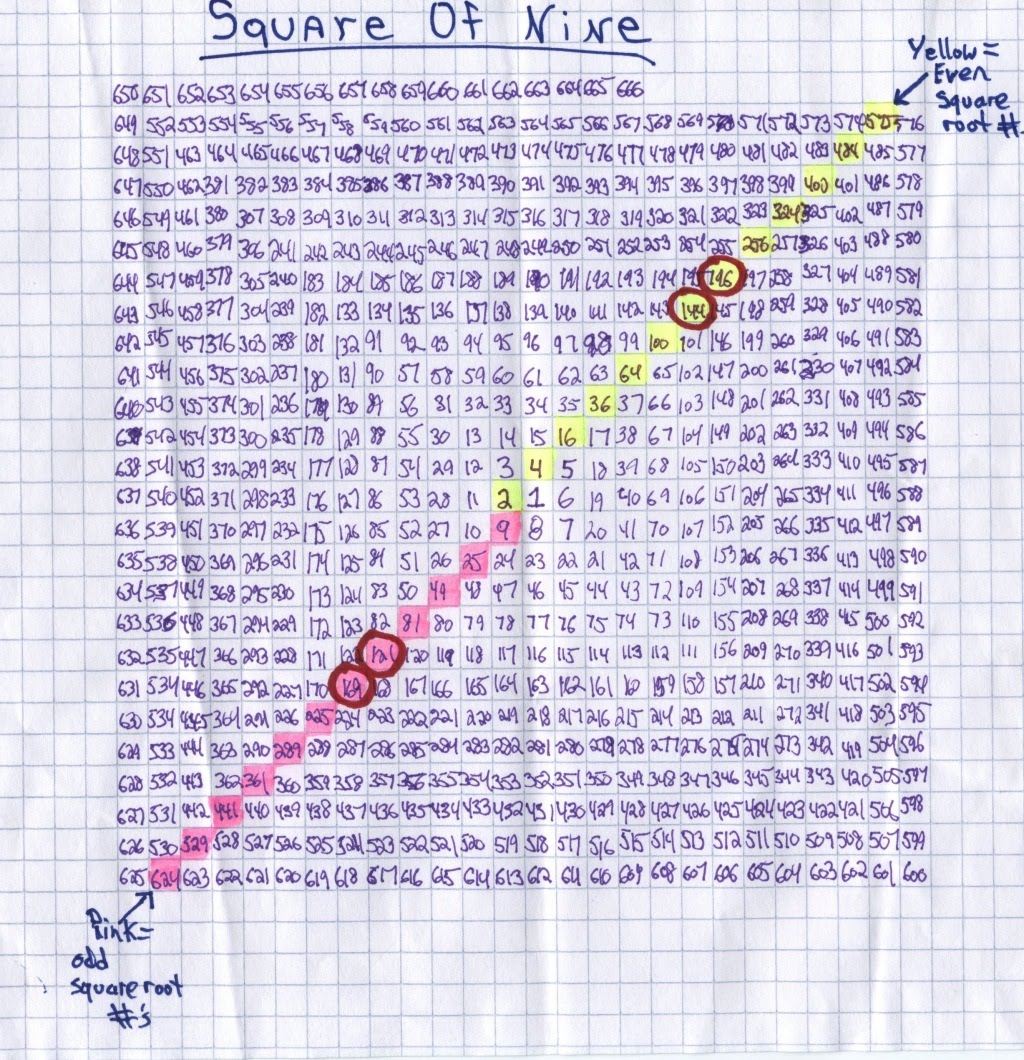 Square Of Nine
Yellow =
Even
Square
root #.
650 651 652 653 654 655 656 657 658 659 660 661 662 663 664 665 666
649 552 553 554 555 556 557 558 559 560 561 562 563 564 565 566 567 568 569 570 571 572 573 574 575 576
648 551 463 464 465 466 467 468 469 470 471 472 473 474 475 476 477 478 479 480 481 482 483 484 485 577
647 550 462 381 382 383 384 385 386 387 388 389 390 391 392 393 394 395 396 397 398 399 400 401 486 578
646 549 461 380 307 308 309 310 311 312 313 314 315 316 317 318 319 320 321 322 323 324 325 402 487 579
645 548 460 379 306 241 242 243 244 245 246 247 248 249 250 251 252 253 254 255 256 257 326 403 488 580
644 547 459 378 305 240 183 184 185 186 187 188 189 190 191 192 193 194 195 196 197 258 327 404 489 581
643 546 458 377 304 239 182 133 134 135 136 137 138 139 140 141 142 143 144 145 198 259 328 405 490 582
642 545 457 376 303 238 181 132 91 92 93 94 95 96 97 98 99 100 101 146 199 260 329 406 491 583
641 544 456 375 302 237 180 131 90 57 58 59 60 61 62 63 64 65 102 147 200 261 330 407 492 584
640 543 455 374 301 236 179 130 89 56 31 32 33 34 35 36 37 66 103 148 201 262 331 408 493 585
639 542 454 373 300 235 178 129 88 55 30 13 14 15 16 17 38 67 104 149 202 263 332 409 494 586
638 541 453 372 299 234 177 128 87 54 29 12 3 4 5 18 39 68 105 150 203 264 333 410 495 587
637 540 452 371 298 233 176 127 86 53 28 11 2 1 6 19 40 69 106 151 204 265 334 411 496 588
636 539 451 370 297 232 175 126 85 52 27 10 9 8 7 20 41 70 107 152 205 266 335 412 497 589
635 538 450 369 296 231 174 125 84 51 26 25 24 23 22 21 42 71 108 153 206 267 336 413 498 590
634 537 449 368 295 230 173 124 83 50 49 48 47 46 45 44 43 72 109 154 207 268 337 414 499 591
633 536 448 367 294 229 172 123 82 81 80 79 78 77 76 75 74 73 110 155 208 269 338 415 500 592
632 535 447 366 293 228 171 122 121 120 119 118 117 116 115 114 113 112 111 156 209 270 339 416 501 593
631 534 446 365 292 227 170 169 168 167 166 165 164 163 162 161 160 159 158 157 210 271 340 417 502 594
630 534 445 364 291 226 225 224 223 222 221 220 219 218 217 216 215 214 213 212 211 272 341 418 503 595
629 533 444 363 290 289 288 287 286 285 284 283 282 281 280 279 278 277 276 275 274 273 342 419 504 596
628 532 443 362 361 360 359 358 357 356 355 354 353 352 351 350 349 348 347 346 345 344 343 420 505 597
627 531 442 441 440 439 438 437 436 435 434 433 432 431 430 429 428 427 426 425 424 423 422 421 506 598
626 530 529 528 527 526 525 524 523 522 521 520 519 518 517 516 515 514 513 512 511 510 509 508 507 599
625 624 623 622 621 620 619 618 617 616 615 614 613 612 611 610 609 608 607 606 605 604 603 602 601 600
Pink=
odd
square root
#'s